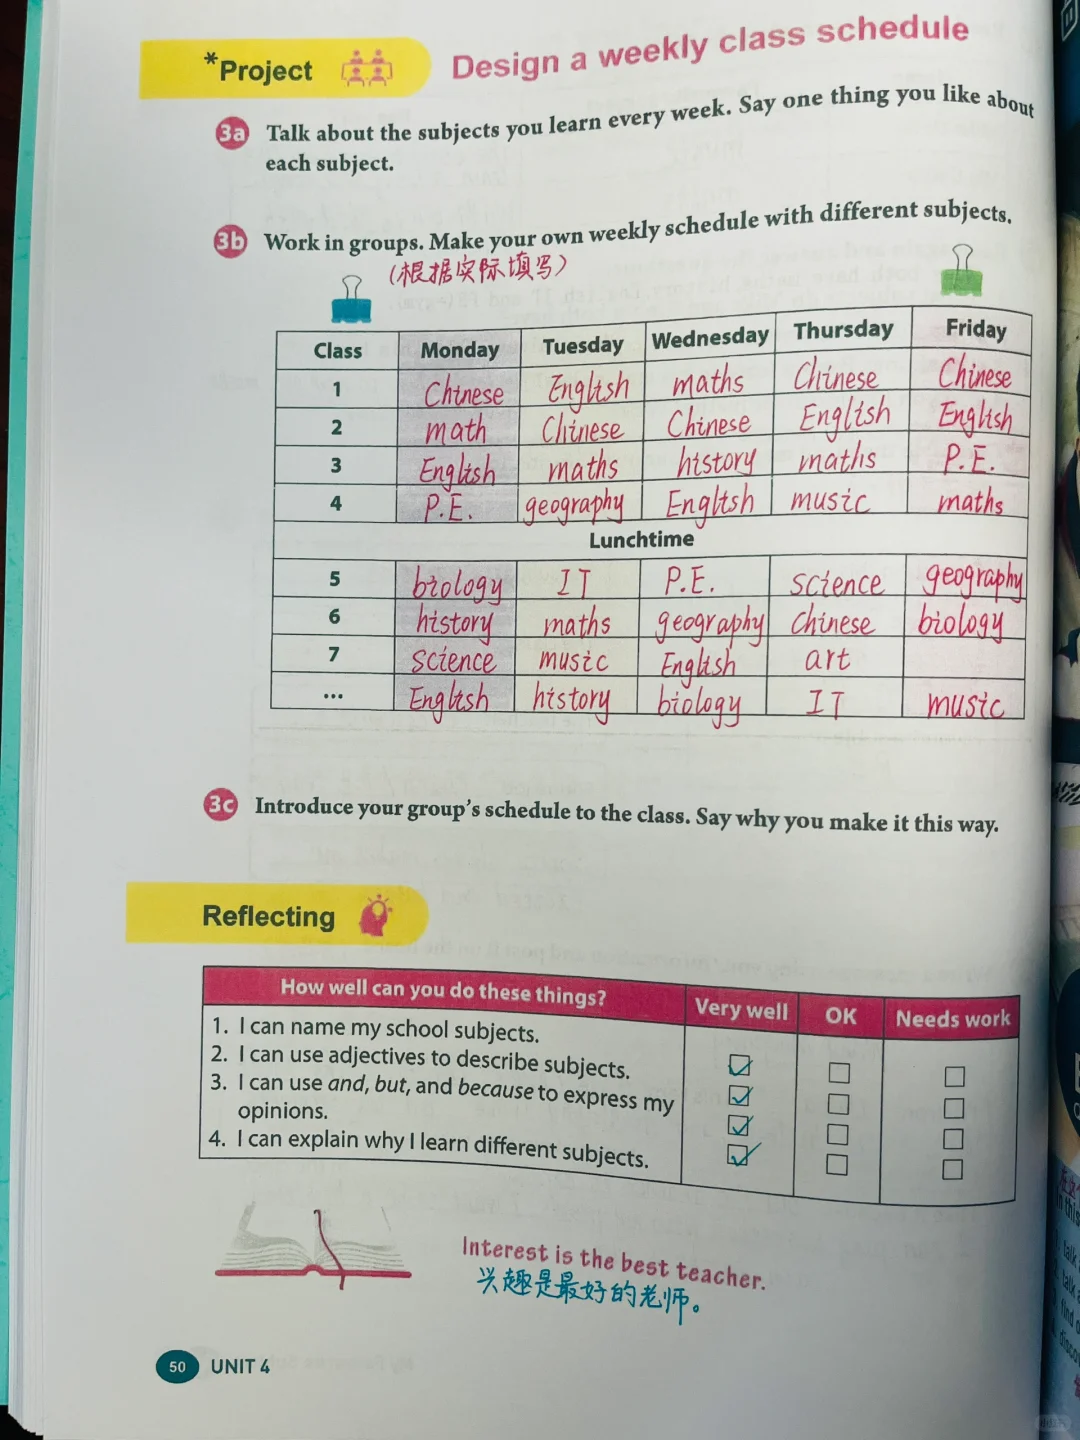 *Project
Design a weekly class schedule
3a Talk about the subjects you learn every week. Say one thing you like about
each subject.
3b Work in groups. Make your own weekly schedule with different subjects.
(根据实际填写)
Class Monday Tuesday Wednesday Thursday Friday
1 Chinese English maths Chinese Chinese
2 math Chinese Chinese English English
3 English maths history maths P.E.
4 P.E. geography English music maths
Lunchtime
5 biology IT P.E. science geography
6 history maths geography Chinese biology
7 science music English art
... English history biology IT music
3c Introduce your group's schedule to the class. Say why you make it this way.
Reflecting
How well can you do these things? Very well OK Needs work
1. I can name my school subjects.
2. I can use adjectives to describe subjects.
3. I can use and, but, and because to express my
opinions.
4. I can explain why I learn different subjects.
Interest is the best teacher.
兴趣是最好的老师。
50 UNIT 4